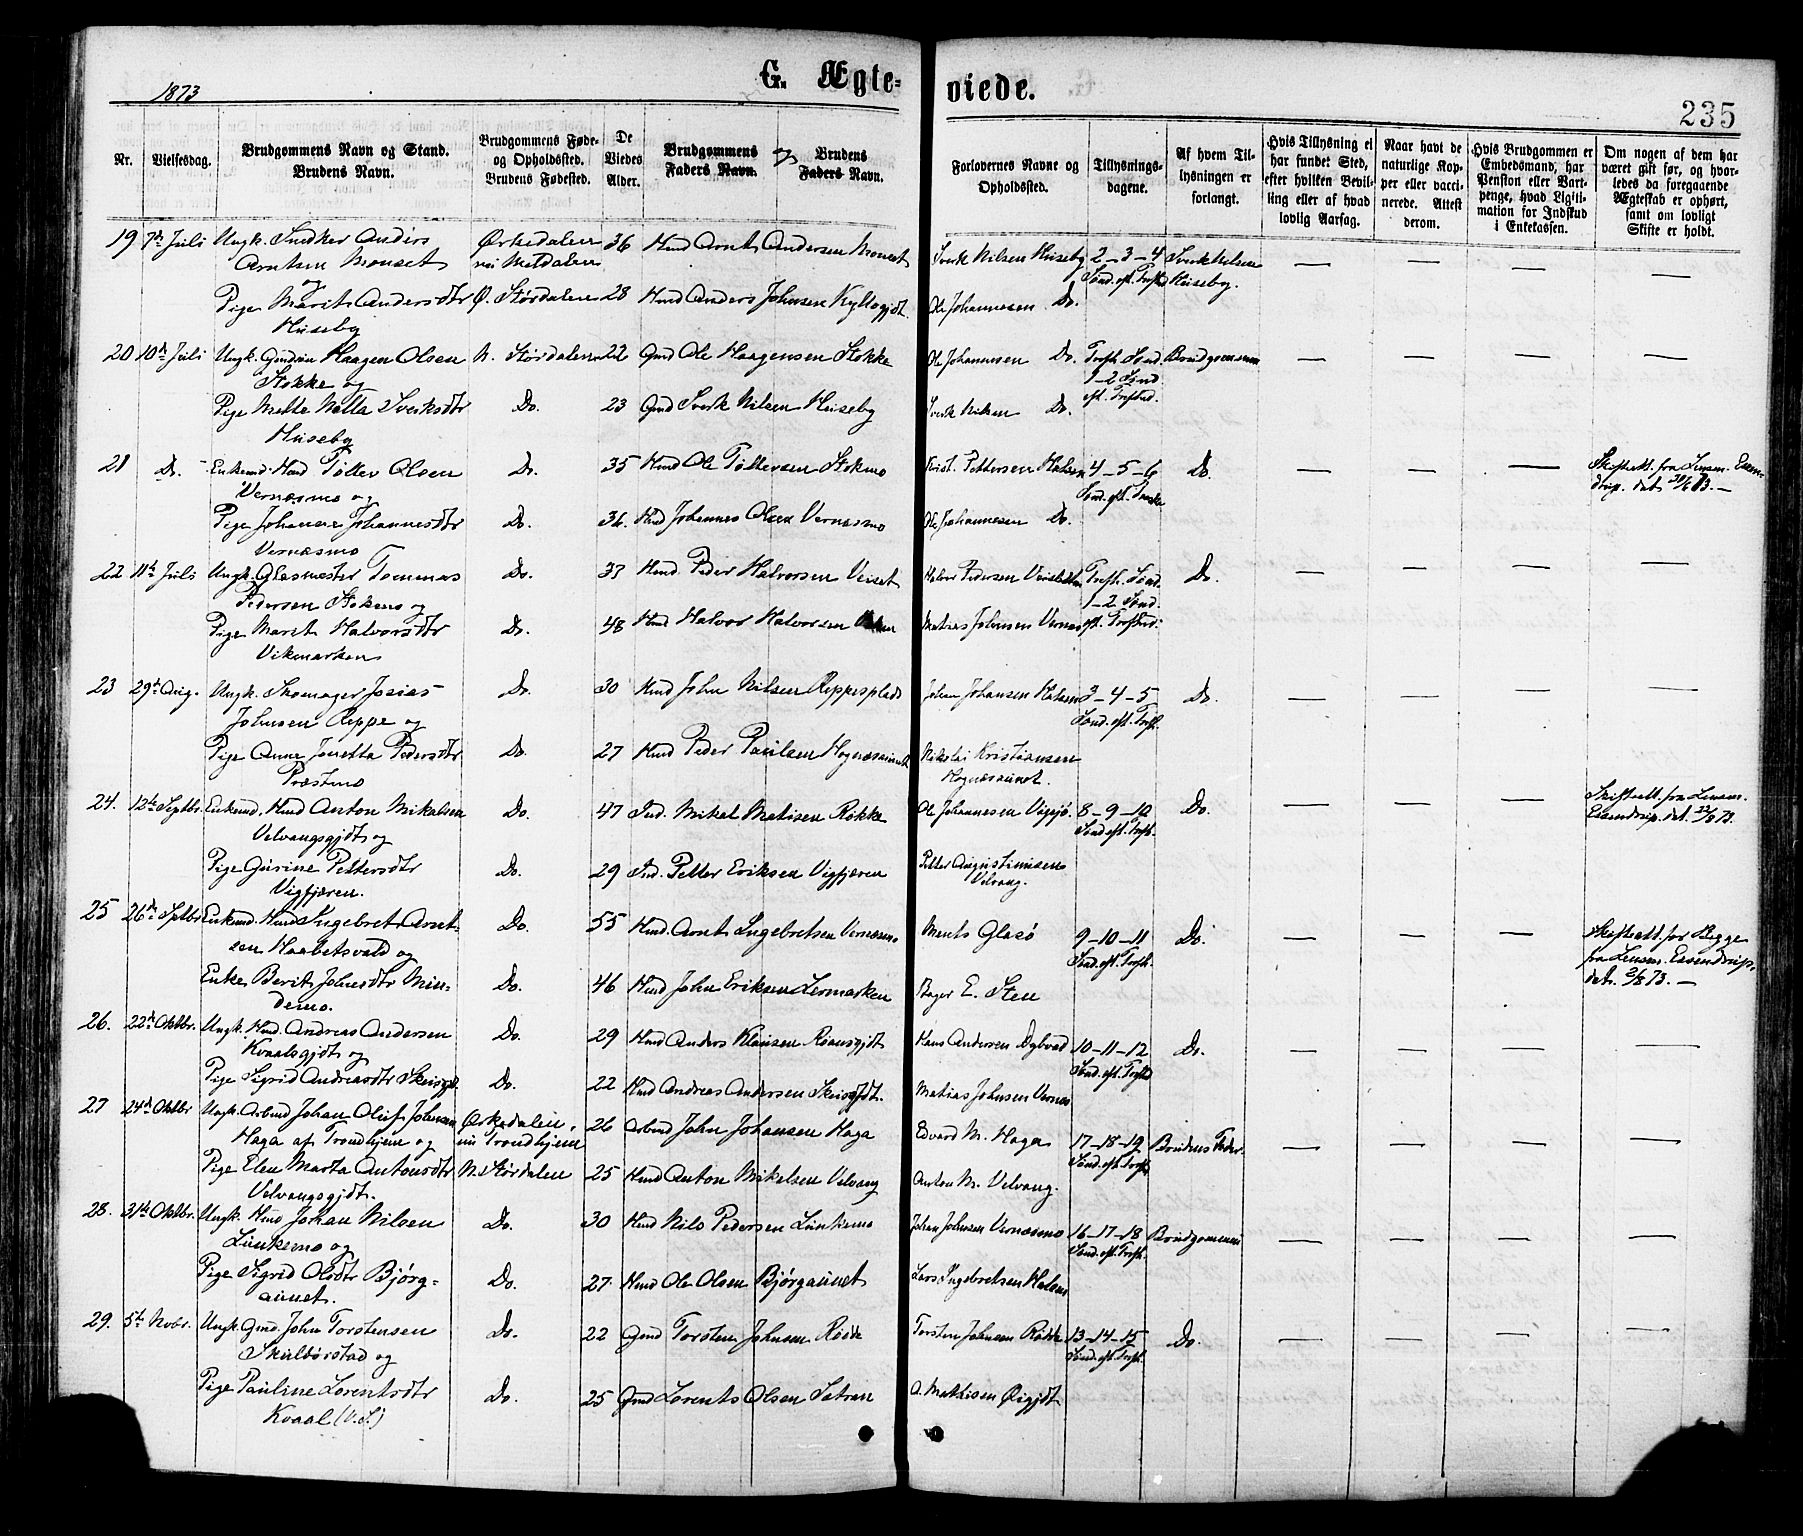 1873
G. Ægte-
viede.
235
Nr.
Vielsesdag.
Brudgommens Navn og Stand.
Brudens Navn.
Brudgommens Føde-
og Opholdssted.
Brudens Fødested.
De
Viedes
Alder.
Brudgommens
Faders Navn.
og
Brudens
Faders Navn.
Forlovernes Navne og
Opholdssted.
Tillysnings-
dagene.
Af hvem Til-
lysningen er
forlangt.
Hvis Tillysning ei
har fundet Sted,
efter hvilken Bevil-
ling eller af hvad
lovlig Aarsag.
Naar havt de
naturlige Kop-
per eller vacci-
nerede. Attest
derom.
Hvis Brudgommen er
Embedsmand, har
Pension eller Vart-
penge, hvad Ligiti-
mation for Indskud
i Enkekassen.
Om nogen af dem har
været gift før, og hvor-
ledes da foregaaende
Ægteskab er ophørt,
samt om lovligt
Skifte er holdt.
19 7de Juli Ungk. Snedker Anders Ørkedalen 36 Hmd Arnt Andersen Monset Sverk Nilsen Huseby 2-3-4 Sverk Nilsen — — — —
Arntsen Monset Meldalen Sønd. eft. Trefd. Huseby.
og
Pige Marit Andersdtr Ø. Størdalen 28 Hmd Anders Johnsen Kyllogjdt. Ole Johannesen Do.
Huseby
20 10de Juli Ungk. Gmdsøn Haagen Olsen N. Størdalen 22 Gmd Ole Haagensen Stokke Ole Johannesen Do. Trefh. Sønd. Brudgommen — — — —
Stokke og 1-2 Sønd.
Pige Mette Sverksdtr Do. 23 Gmd Sverk Nilsen Huseby Sverk Nilsen Do. eft. Trefhed.
Huseby
21 Do. Enkemd. Hmd Petter Olsen Do. 35 Hmd Ole Pettersen Stokmo Krist. Pettersen Halsen 4-5-6 Do. — — — Skifteatt. fra Lensm.
Vernæsmo og Sønd. eft. dat. 73. —
Pige Johanne Johannesdtr Do. 36. Hmd Johannes Olsen Vernæsmo Ole Johannesen Do.
Vernæsmo
22 11te Juli Ungk. Glasmester Tommas Do. 33 Hmd. Peder Halvorsen Veiset Halvor Pedersen Trefh. Sønd. Do. — — — —
Pedersen Stokmo og 1-2 Sønd.
Pige Marit Halvorsdtr Do. 48 Hmd Halvor Halvorsen Matias Johnsen Vernæs eft. Trefhed.
Vikmarken
23 29de Aug. Ungk. Skomager Josias Do. 30 Hmd John Nilsen Reppesplads Johan Johansen Halsen 3-4-5 Do. — — — —
Johnsen Reppe og Sønd. eft. Trefh.
Pige Anne Jonetta Pedersdtr Do. 27 Hmd Peder Paulsen Hognæsaunet Nikolai Kristiansen
Præstmo Hognæsaunet.
24. 12te Septbr. Enkemd. Hmd Anton Mikalsen Do. 47 Ind. Mikal Matisen Røkke Ole Johannesen 8-9-10 Do. — — — Skifteatt. fra Lensm.
Velvangsgjdt og Sønd. eft. Trefh. dat. 73.
Pige Gurine Pettersdtr Do. 29 Ind. Petter Eriksen Vigfjæren Petter Augustinusen
Vigfjæren. Velvang.
25 26de Septbr. Enkemd. Hmd Ingebret Arnt- Do. 55 Hmd. Arnt Ingebretsen Vernæsmo Ments Glasø 9-10-11 Do. — — — Skifteatt. for Begge
sen Haabetsvald og Sønd. eft. Trefh. fra Lensm.
Enke Berit Johnsdtr Min- Do. 46 Hmd John Eriksen Lermarken Bager E. Sten dat. 73. —
demo.
26. 22de Oktbr. Ungk. Hmd. Andreas Andersen Do. 29 Hmd Anders Klausen Roansgjdt Hans Andersen Dybvad 10-11-12 Do. — — — —
Kvaalsgjdt og Sønd. eft. Trefhd
Pige Sigrid Andreasdtr Do. 22 Hmd Andreas Andersen Matias Johnsen Vernæs
27 24de Oktbr Ungk. Arbmd Johan Oluf Johnsen Ørkedalen, 26 Arbmd John Johansen Haga Edvard M. Haga 17-18-19 Brudens Fader — — — —
Haga af Trondhjem og nu Trondhjem Sønd. eft. Trefh.
Pige Elen Marta Antonsdtr N. Størdalen 25 Hmd Anton Mikelsen Velvang Anton M. Velvang.
Velvangsgjdt.
28. 31te Oktbr. Ungk. Hmd Johan Nilsen Do. 30 Hmd Nils Pedersen Linkemo Johan Johnsen Vernæsmo 16-17-18 Brudgommen — — — —
Linkemo og Sønd. eft. Trefh.
Pige Sigrid Olsdtr Bjørg- Do. 27. Hmd Ole Olsen Bjørgaunet Lars Ingebretsen Halsen
aunet.
29. 5te Novbr. Ungk. Gmd. John Torstensen Do. 22 Gmd Torsten Johnsen Rødde Torsten Johnsen Rødde 13-14-15 Do. — — — —
Skulbørstad og Sønd. eft. Trefh.
Pige Pauline Lorentsdtr Do. 25 Gmd Lorents Olsen Sætran O. Mathisen Øigjdt
Kvaal (V.S.)